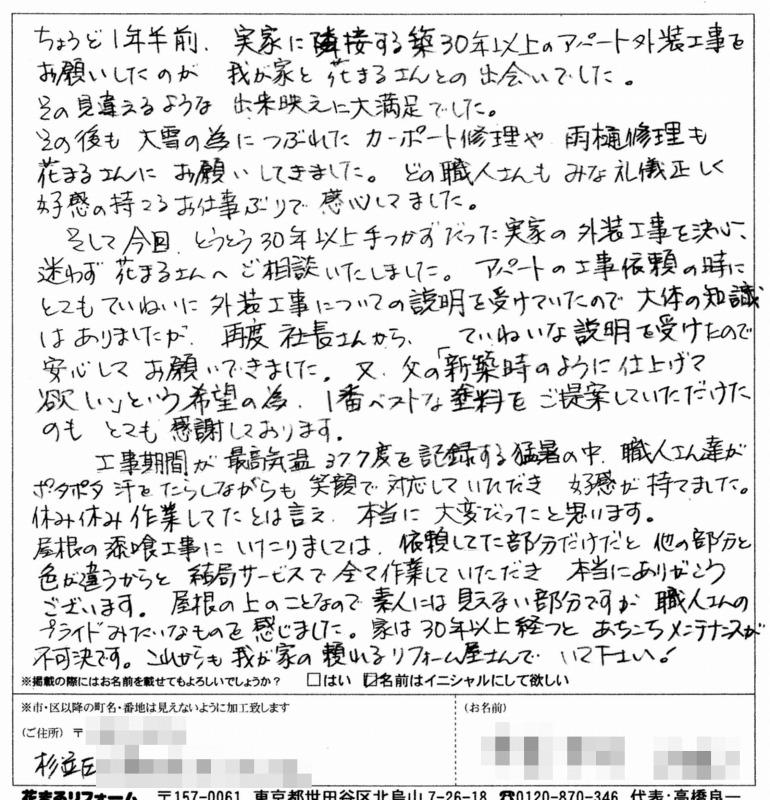 ちょうど1年半前、実家に隣接する築30年以上のアパート外装工事を
お願いしたのが 我が家と花まるさんとの出会いでした。
その見違えるような 出来映えに大満足でした。
その後も 大雪の為につぶれた カーポート修理や 雨樋修理も
花まるさんに お願いしてきました。どの職人さんもみな礼儀正しく
好感の持てるお仕事ぶりで 感心してました。
そして今回、とうとう30年以上手つかずだった実家の 外装工事を決心、
迷わず 花まるさんへご相談いたしました。アパートの工事依頼の時に
とてもていねいに 外装工事についての説明を受けていたので 大体の知識
はありましたが、再度 社長さんから、ていねいな説明を受けたので
安心して お願いできました。又、父の「新築時のように仕上げて
欲しい」という希望の為、1番ベストな塗料をご提案していただけた
のも とても 感謝しております。
工事期間が 最高気温 37.7度を記録する猛暑の中、職人さん達が
ポタポタ汗をたらしながらも 笑顔で対応していただき 好感が持てました。
休み休み作業してたとは言え、本当に 大変だったと思います。
屋根の漆喰工事に いたりましては、依頼してた部分だけだと他の部分と
色が違うからと 結局サービスで 全て作業していただき 本当にありがとう
ございます。屋根の上のことなので素人には 見えない部分ですが 職人さんの
プライドみたいなものを感じました。家は30年以上経つと あちこちメンテナンスが
不可決です。これからも我が家の 頼れるリフォーム屋さんで いて下さい!
※掲載の際にはお名前を載せてもよろしいでしょうか? □はい ☑名前はイニシャルにして欲しい
※市・区以降の町名・番地は見えないように加工致します
(お名前)
(ご住所)〒
杉並区
花まるリフォーム 〒157-0061 東京都世田谷区北烏山7-26-18 ☎0120-870-346 代表:高橋良一